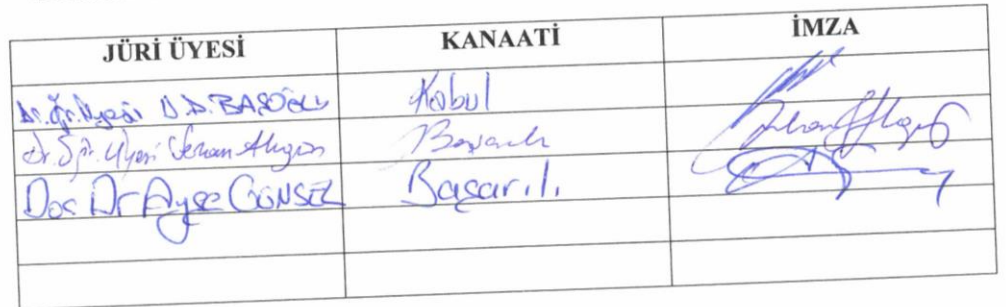 JÜRİ ÜYESİ KANAATİ İMZA
Dr. Öğr. Üyesi D.D. BAŞOĞLU Kabul
Dr. Öğr. Üyesi Başarılı
Doç Dr Ayşe GÜNSEL Başarılı